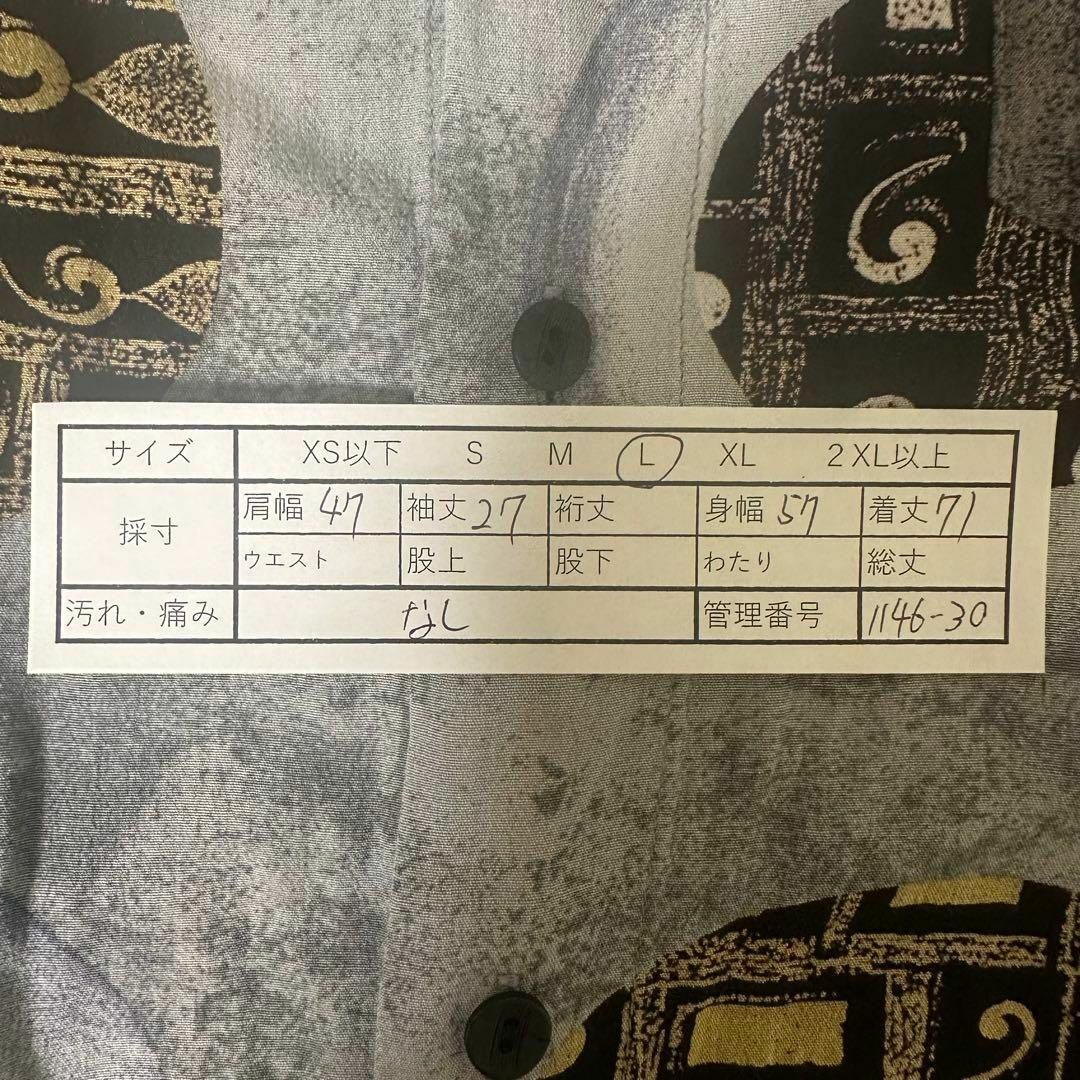 サイズ XS以下 S M L XL 2XL以上
採寸 肩幅 47 袖丈 27 裄丈 身幅 57 着丈 71
ウエスト 股上 股下 わたり 総丈
汚れ・痛み なし 管理番号 1146-30